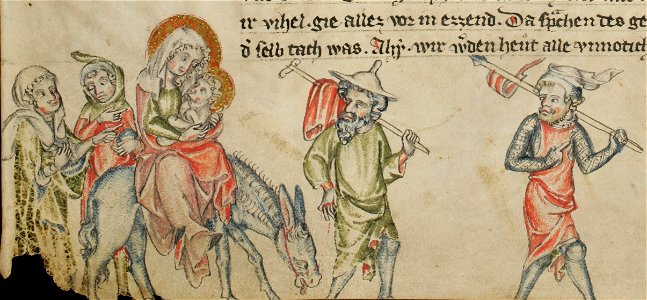 ir vihel. gie allez vor in ezzend. Da sp̃chen des ge
d̓ selb tach was. Ahy. wir w̓den heut alle vnnotich